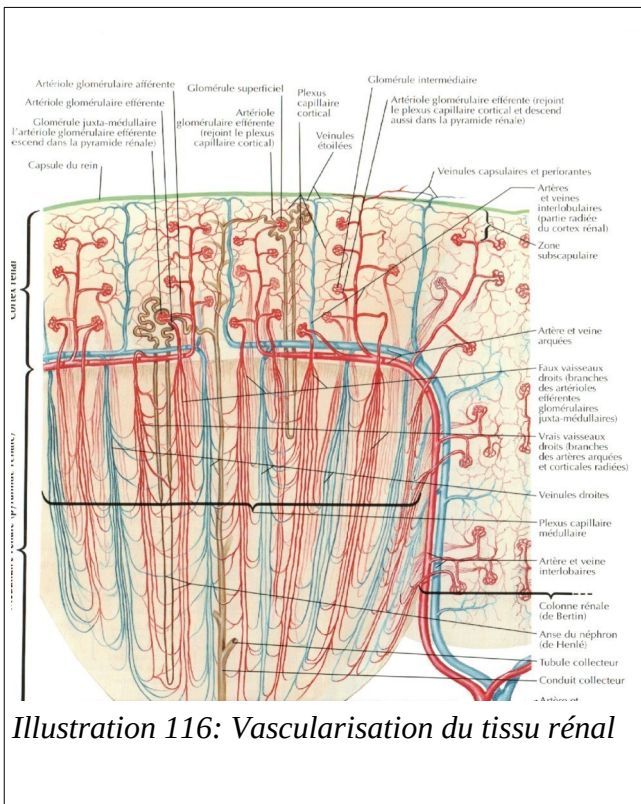 Artériole glomérulaire afférente
Artériole glomérulaire efférente
Glomérule juxta-médullaire
l'artériole glomérulaire efférente
escend dans la pyramide rénale)
Capsule du rein
Glomérule superficiel
Artériole
glomérulaire efférente
(rejoint le plexus
capillaire cortical)
Plexus
capillaire
cortical
Veinules
étoilées
Glomérule intermédiaire
Artériole glomérulaire efférente (rejoint
le plexus capillaire cortical et descend
aussi dans la pyramide rénale)
Veinules capsulaires et periorantes
Artères
et veines
interlobulaires
(partie radiée
du cortex rénal)
Zone
subscapulaire
Artère et veine
arquées
Faux vaisseaux
droits (branches
des artérioles
efférentes
glomérulaires
juxta-médullaires)
Vrais vaisseaux
droits (branches
des artères arquées
et corticales radiées)
Veinules droites
Plexus capillaire
médullaire
Artère et veine
interlobaires
Colonne rénale
(de Bertin)
Anse du néphron
(de Henlé)
Tubule collecteur
Conduit collecteur
Artère et
Illustration 116: Vascularisation du tissu rénal